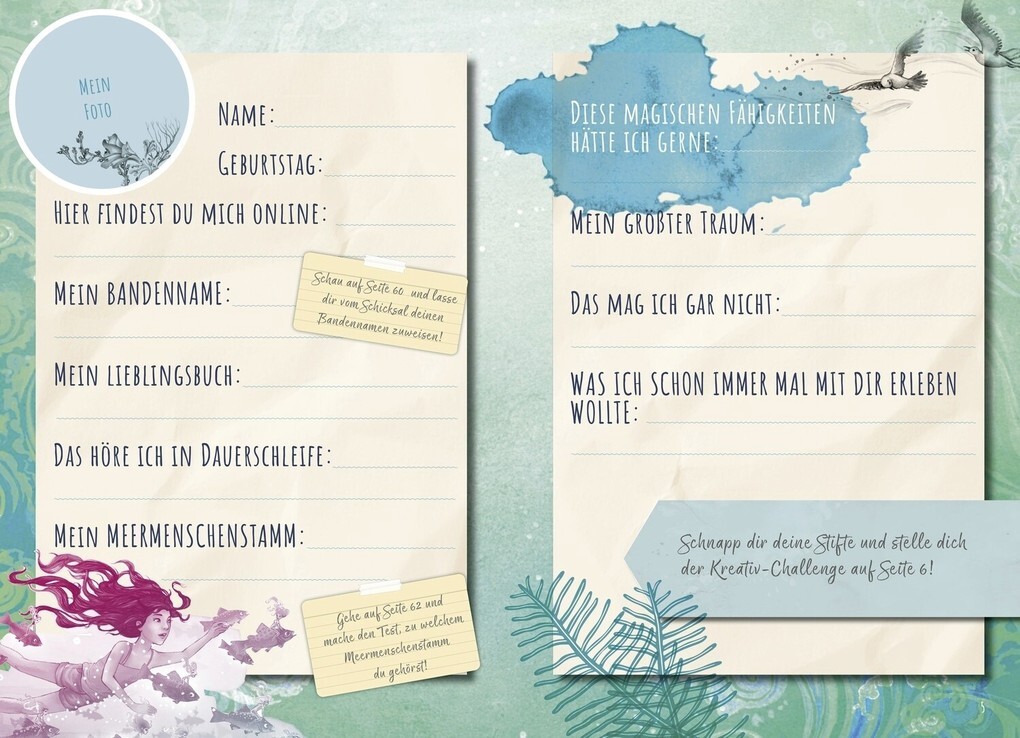 Mein
Foto
Name:
Geburtstag:
Hier findest du mich online:
Mein BANDENNAME:
Schau auf Seite 60 und lasse
dir vom Schicksal deinen
Bandennamen zuweisen!
Mein Lieblingsbuch:
Das höre ich in Dauerschleife:
Mein MEERMENSCHENSTAMM:
Gehe auf Seite 62 und
mache den Test, zu welchem
Meermenschenstamm
du gehörst!
Diese magischen Fähigkeiten
hätte ich gerne:
Mein größter Traum:
Das mag ich gar nicht:
WAS ICH SCHON IMMER MAL MIT DIR ERLEBEN
WOLLTE:
Schnapp dir deine Stifte und stelle dich
der Kreativ-Challenge auf Seite 6!